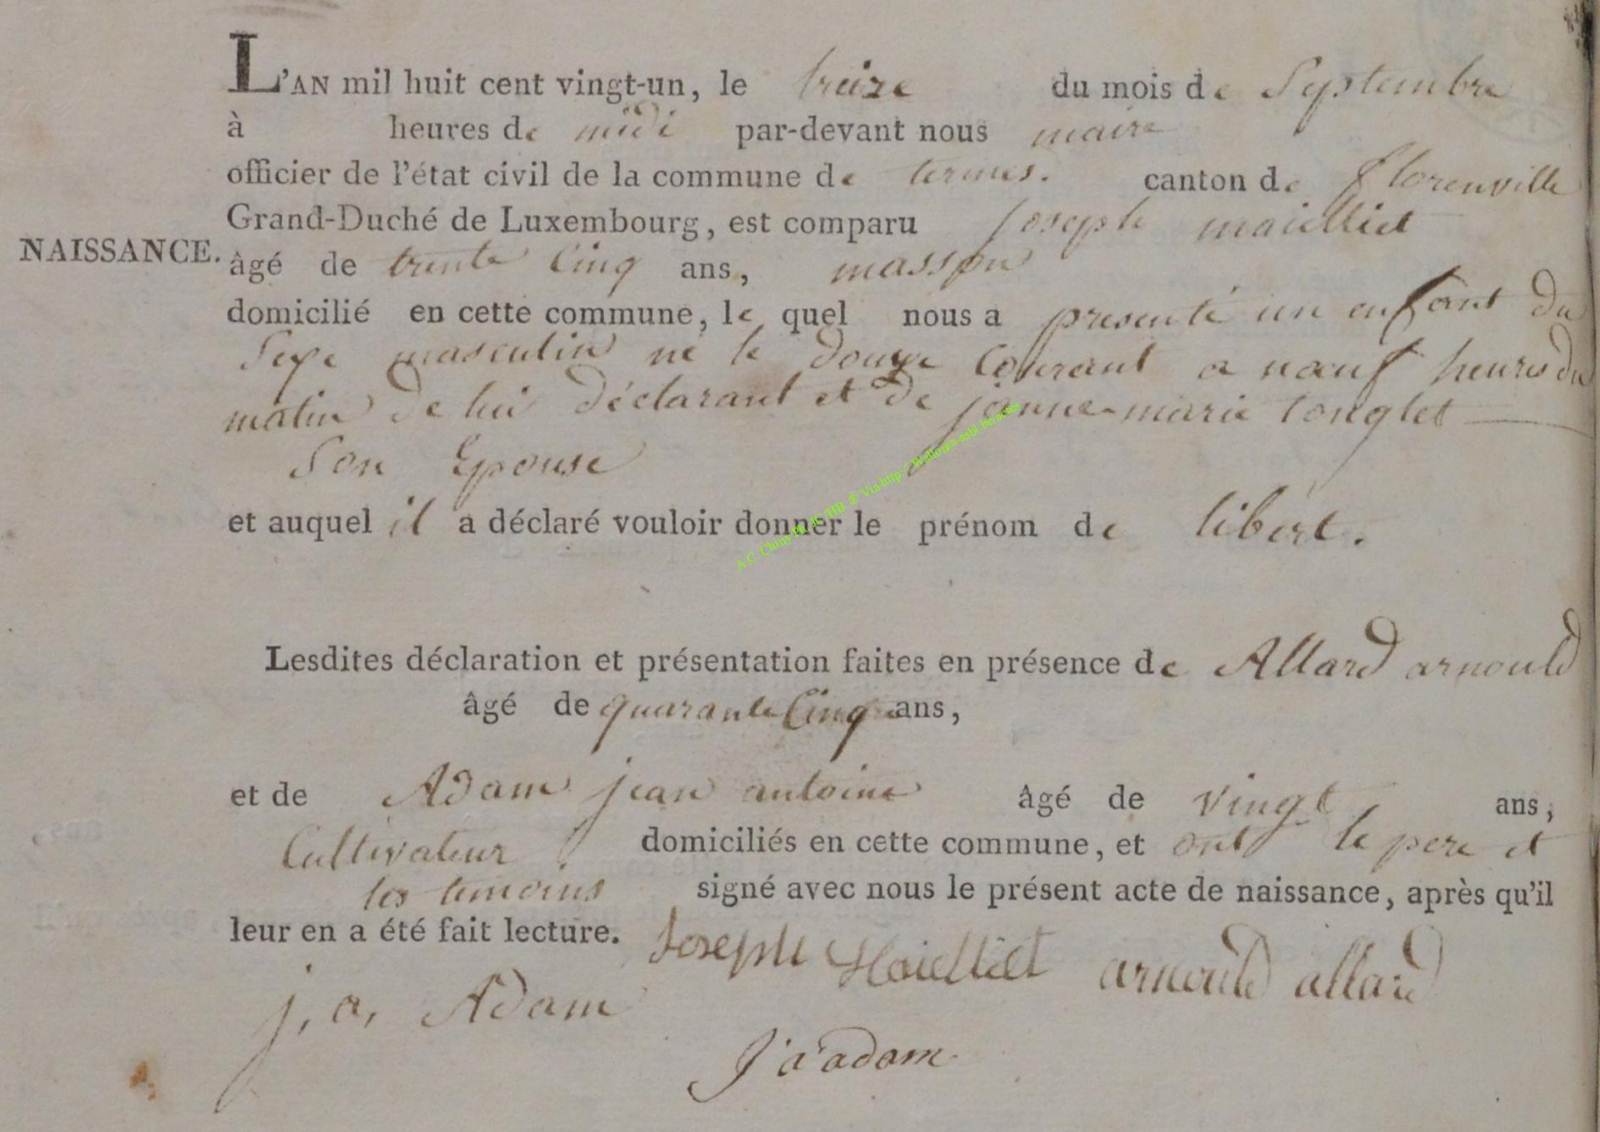 L'AN mil huit cent vingt-un, le treize du mois de Septembre
à heures de midi par-devant nous maire
officier de l'état civil de la commune de termes. canton de florenville
Grand-Duché de Luxembourg, est comparu Joseph maielliet
NAISSANCE.
âgé de trente Cinq ans, masson
domicilié en cette commune, le quel nous a presenté un enfant du
Sexe masculin né le douze Courant a nœuf heures du
matin de lui déclarant et de jeanne-marie tonglet
Son Epouse
et auquel il a déclaré vouloir donner le prénom de libert.
Lesdites déclaration et présentation faites en présence de Allard arnould
âgé de quarante Cinq ans,
et de Adam jean antoine âgé de vingt ans,
Cultivateur domiciliés en cette commune, et ont le pere et
les temoins signé avec nous le présent acte de naissance, après qu'il
leur en a été fait lecture. Joseph Maielliet arnould allard
j, a, Adam
J a adam